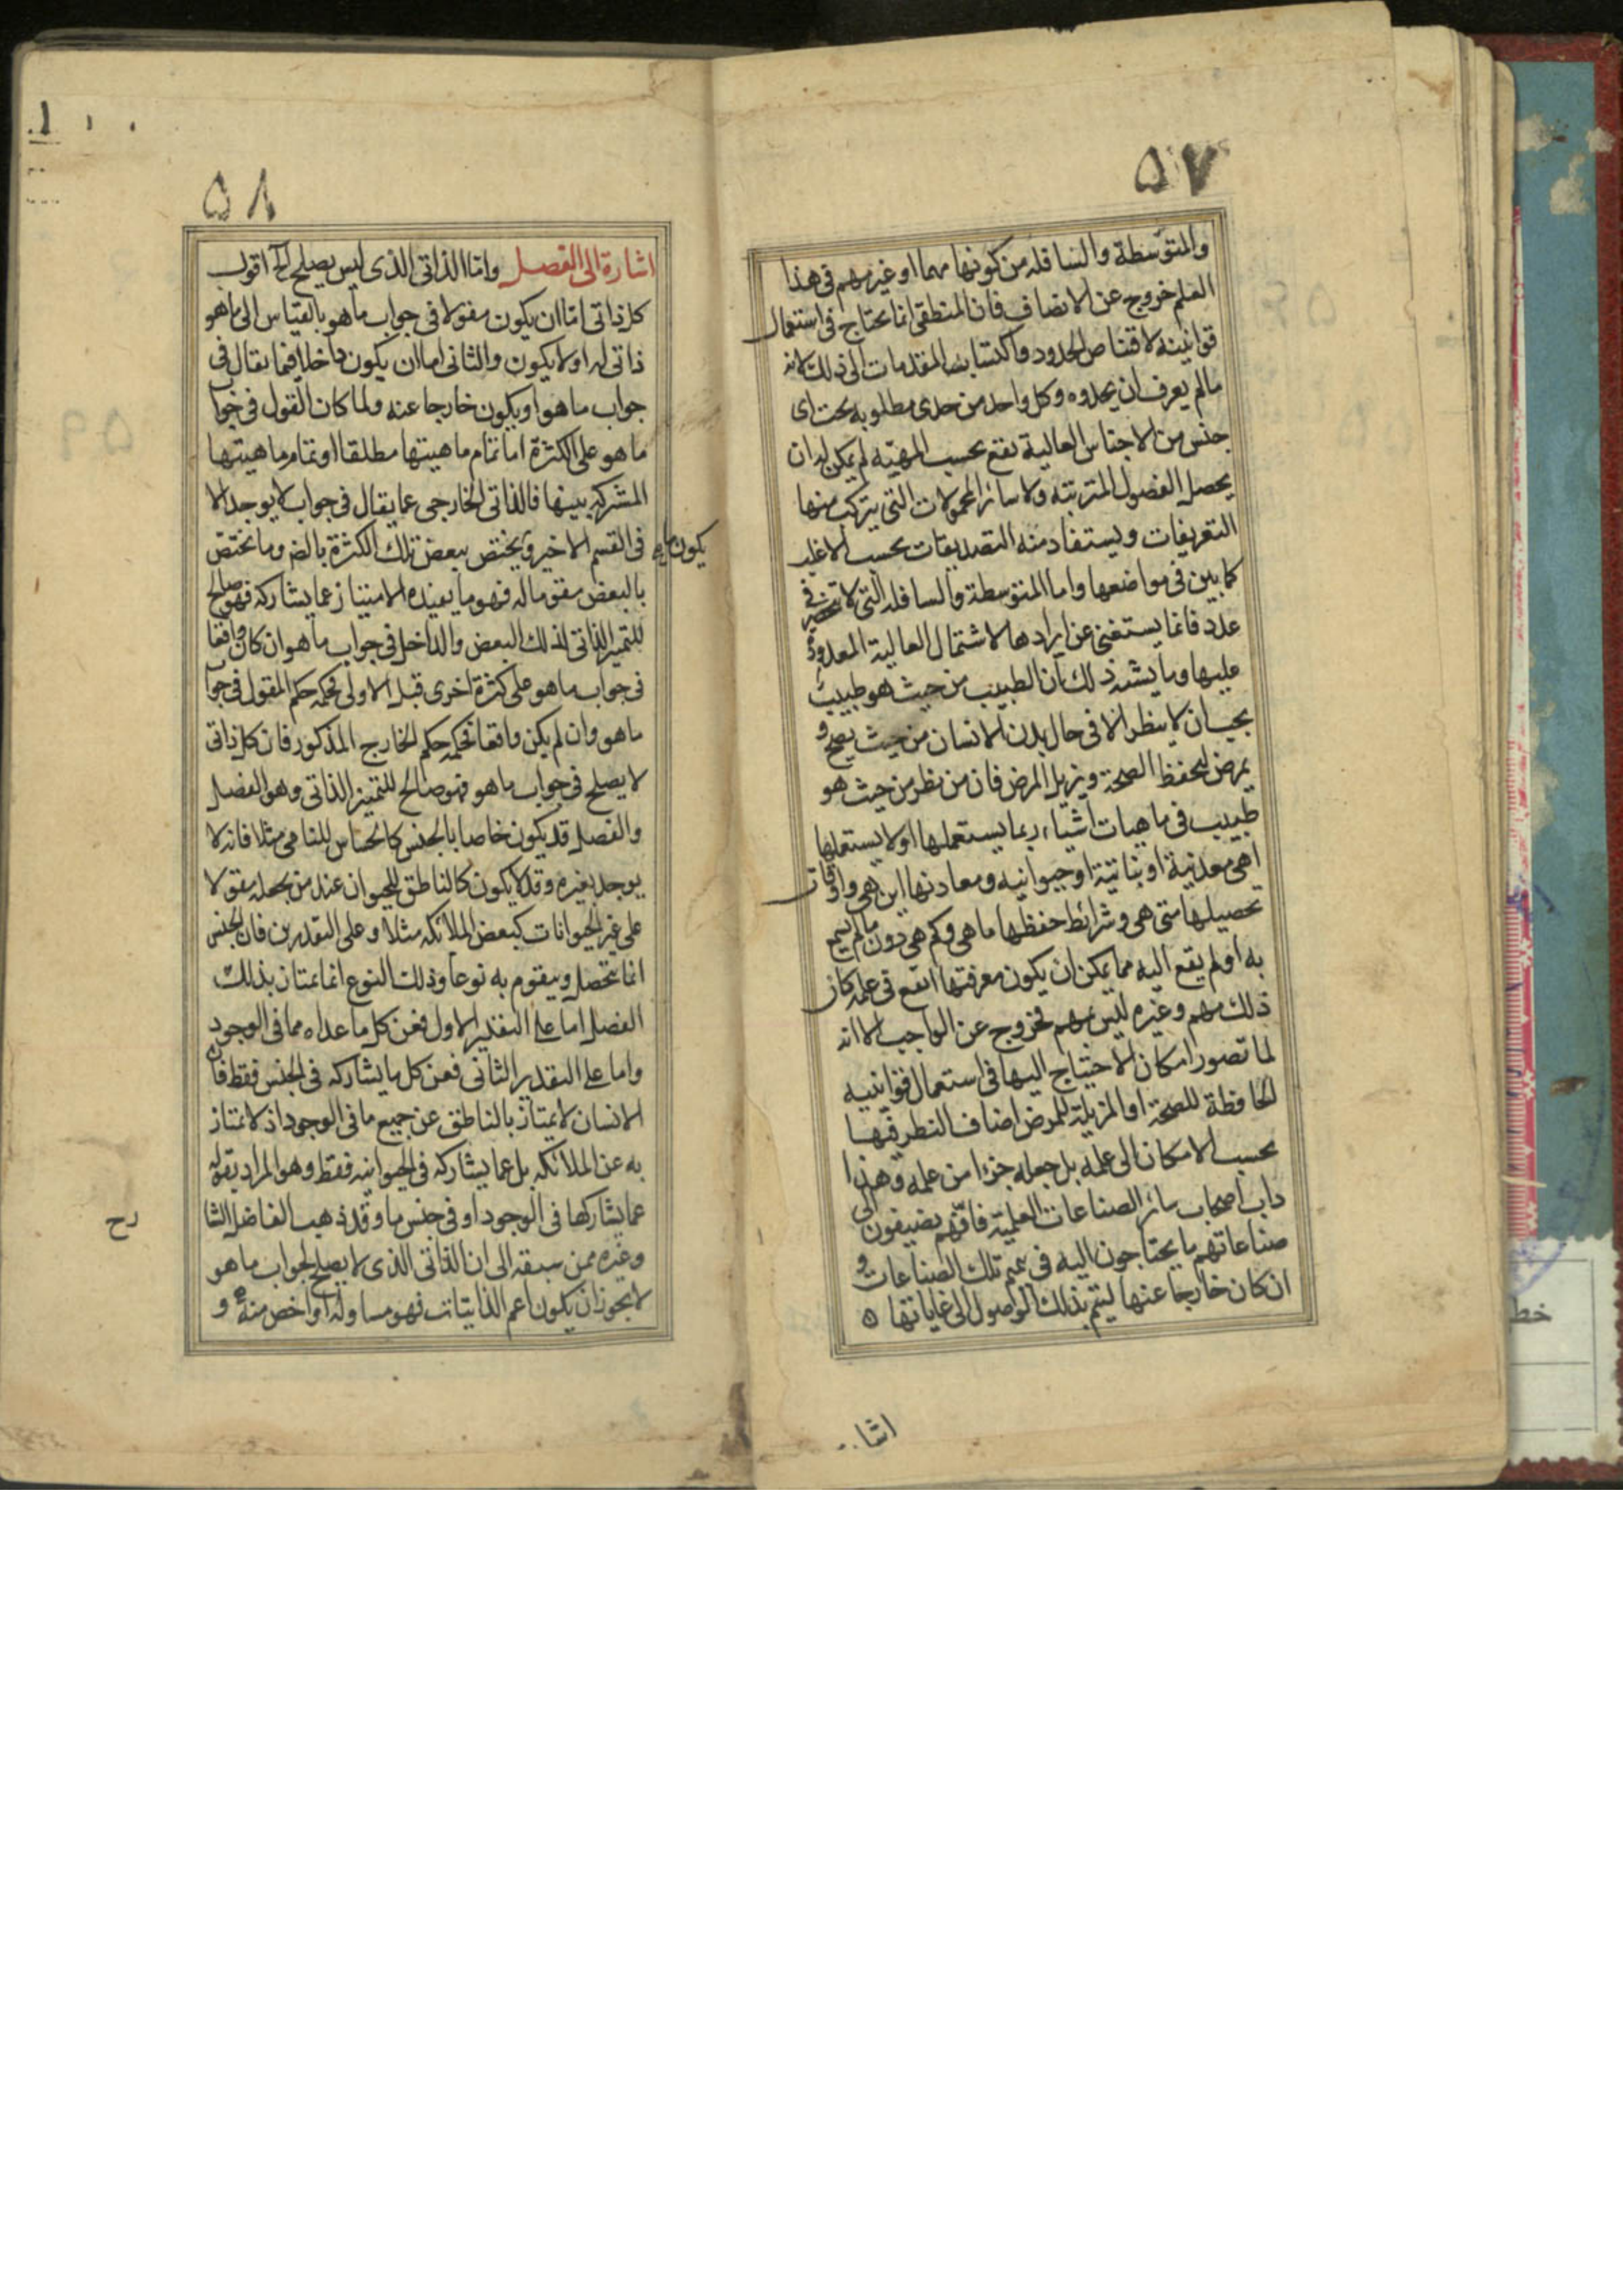 ٥٧
والمتوسطة والسافلة من كونها مهما او غير مهم فى هذا
العلم خروج عن الانصاف فان المنطقى انما يحتاج فى استعمال
قوانينه لاقتناص الحدود واكتساب المقدمات الى ذلك لانه
مالم يعرف ان يحدوه وكل واحد من حدى مطلوبه تحت اى
جنس من الاجناس العالية تقع بحسب المهيّة لم يمكن له ان
يحصل الفصول المترتبه ولا سائر المحمولات التى يتركب منها
التعريفات ويستفاد منه التصديقات بحسب الاغلب
كما بين فى مواضعها واما المتوسطة والسافله التى لا تنحصر فى
عدد فانما يستغنى عن ايرادها لاشتمال العالية المعدودة
عليها وما يشبه ذلك ان الطبيب من حيث هو طبيب
يجب ان لا ينظر الا فى حال بدن الانسان من حيث يصح و
يمرض ليحفظ الصحة ويزيل المرض فان من نظر من حيث هو
طبيب فى ماهيات اشياء ربما يستعملها او لا يستعملها
اهى معدنية او نباتية او حيوانيه ومعادنها اين هى واوقات
تحصيلها متى هى وشرائط حفظها ما هى وكم هى دون ما لم يسمع
به او لم يقع اليه مما يمكن ان يكون معرفتها انفع فى علمه كان
ذلك مهم وغيره ليس بمهم فخروج عن الواجب الا انه
لما تصور امكان الاحتياج اليها فى استعمال قوانينه
الحافظة للصحة او المزيلة للمرض اضاف النظر فيها
بحسب الامكان الى علمه بل جعله جزءا من علمه وهذا
داب اصحاب سائر الصناعات العلمية فانهم يضيفون الى
صناعاتهم ما يحتاجون اليه فى تميم تلك الصناعات و
ان كان خارجا عنها ليتم بذلك الوصول الى غاياتها ه
اشا..
٥٨
اشارة الى الفصل واما الذاتى الذى ليس يصلح الخ اقول
كل ذاتى اما ان يكون مقولا فى جواب ما هو بالقياس الى ما هو
ذاتى له او لا يكون والثانى اما ان يكون داخلا فيما يقال فى
جواب ما هو او يكون خارجا عنه ولما كان القول فى جوا
ما هو على الكثرة اما تمام ماهيتها مطلقا او تمام ماهيتها
المشتركه بينها فالذاتى الخارجى عما يقال فى جواب لا يوجد الا
فى القسم الاخير ويختص ببعض تلك الكثرة بالض وما يختص
يكون
بالبعض مقوما له فهو ما يفيده الامتياز عما يشاركه فهو صالح
للتميز الذاتى لذلك البعض والداخل فى جواب ما هو ان كان واقعا
فى جواب ما هو على كثرة اخرى قبل الاولى فحكمه حكم المقول فى جوا
ما هو وان لم يكن واقعا فحكمه حكم الخارج المذكور فان كل ذاتى
لا يصلح فى جواب ما هو فهو صالح للتميز الذاتى وهو الفصل
والفصل قد يكون خاصا بالجنس كالحساس للنامى مثلا فانه لا
يوجد بغيره وقد لا يكون كالناطق للحيوان عند من يجعله مقولا
على غير الحيوانات كبعض الملائكه مثلا وعلى التقديرين فان الجنس
انما يتحصل ويتقوم به نوعا وذلك النوع انما يمتاز بذلك
الفصل اما على التقدير الاول فعن كل ما عداه مما فى الوجود
واما على التقدير الثانى فعن كل ما يشاركه فى الجنس فقط فان
الانسان لا يمتاز بالناطق عن جميع ما فى الوجود اذ لا يمتاز
به عن الملائكه بل عما يشاركه فى الحيوانيه فقط وهو المراد بقوله
عما يشاركها فى الوجود او فى جنس ما وقد ذهب الفاضل الشا
رح
وغيره ممن سبقه الى ان الذاتى الذى لا يصلح لجواب ما هو
لا يجوز ان يكون اعم الذاتيات فهو مساو له او اخص منه و
٥٩
خط